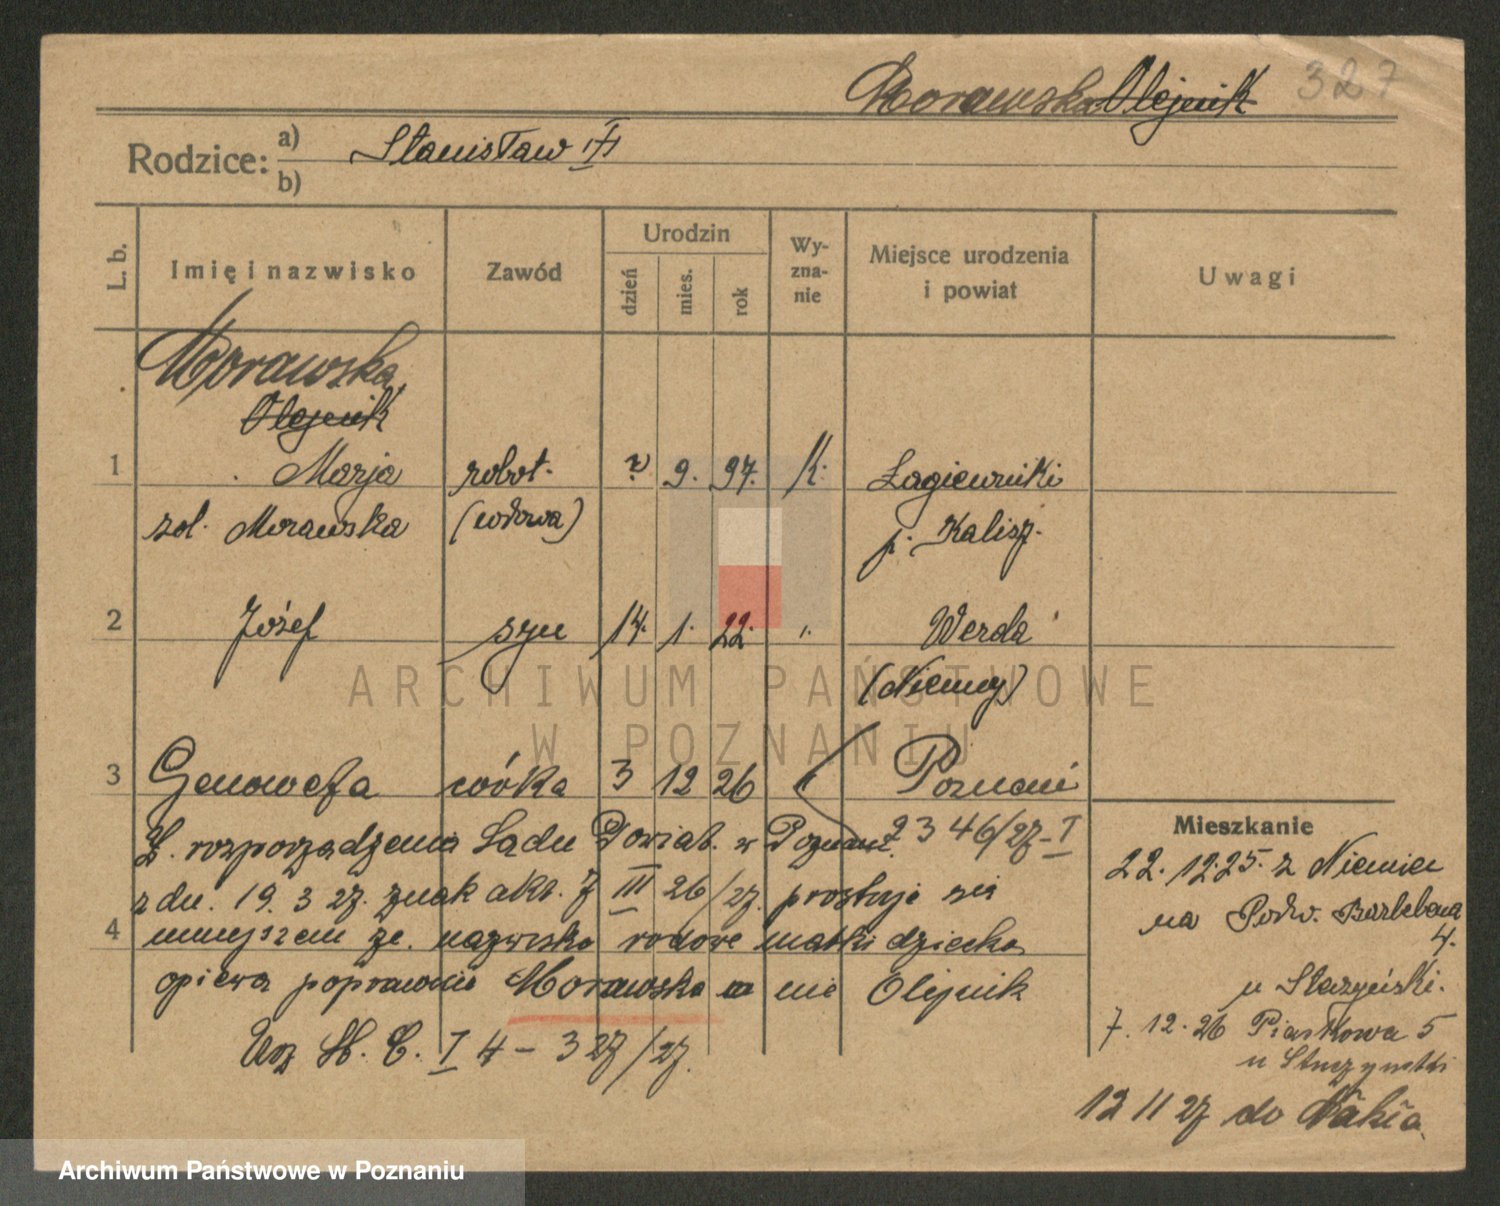 Morawska Olejnik 327
Rodzice: a) Stanisław
b)
L. b. Imię i nazwisko Zawód Urodzin dzień mies. rok Wy-zna-nie Miejsce urodzenia i powiat Uwagi
Morawska
Olejnik
1 Marja robot. 2 9. 97. k. Łagiewniki
zol. Morawska (wdowa) p. Kalisz.
2 Józef syn 14. 1. 22. ". Werda
(Niemcy)
3 Genowefa córka 3 12 26 Poznań
Z. rozporządzenia Sądu Powiat. w Poznaniu 2346/27-I
z dn. 19. 3 27. znak akt. Z III 26/27. prostuje się
4 niniejszem że nazwisko rodowe matki dziecka
opiewa poprawnie Morawska a nie Olejnik
Urz St. C. I 4 - 327/27.
Mieszkanie
22. 12. 25. z Niemiec
na Podw. 4.
u Starzyński.
7. 12. 26 Piaskowa 5
u
12 11 27 do Nakła
ARCHIWUM PAŃSTWOWE
W POZNANIU
Archiwum Państwowe w Poznaniu